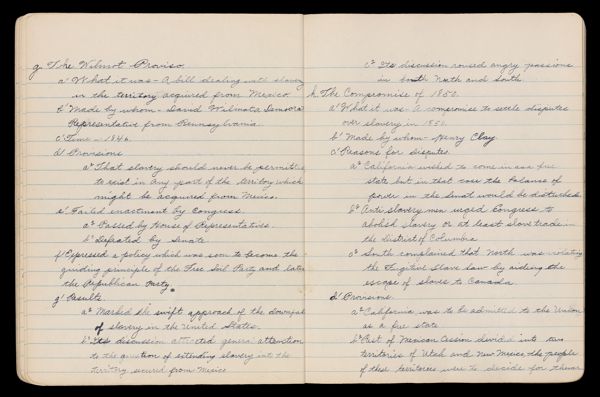 g. The Wilmot Proviso.
a' What it was - A bill dealing with slavery
in the territory acquired from Mexico.
b' Made by whom - David Wilmot a Democratic
Representative from Pennsylvania
c' Time - 1846.
d' Provisions
a² That slavery should never be permitted
to exist in any part of the territory which
might be acquired from Mexico.
e' Failed enactment by Congress.
a² Passed by House of Representatives.
b² Defeated by Senate
f' Expressed a policy which was soon to become the
guiding principle of the Free Soil Party and later
the Republican Party.
g' Results.
a² Marked the swift approach of the downfall
of slavery in the United States.
b² Its discussion attracted general attention
to the question of extending slavery into the
territory secured from Mexico
c² Its discussion roused angry passions
in both North and South
h. The Compromise of 1850.
a' What it was - A compromise to settle disputes
over slavery in 1850.
b' Made by whom - Henry Clay.
c' Reasons for disputes
a² California wished to come in as a free
state but in that case the balance of
power in the Senat would be disturbed.
b² Anti slavery men urged Congress to
abolish slavery or at least slave trade in
the District of Columbia
c² South complained that North was violating
the Fugitive Slave Law by aiding the
escape of slaves to Canada.
d' Provisions.
a² California was to be admitted to the Union
as a free state
b² Rest of Mexican Cession divided into two
territories of Utah and New Mexico, the people
of these territories were to decide for